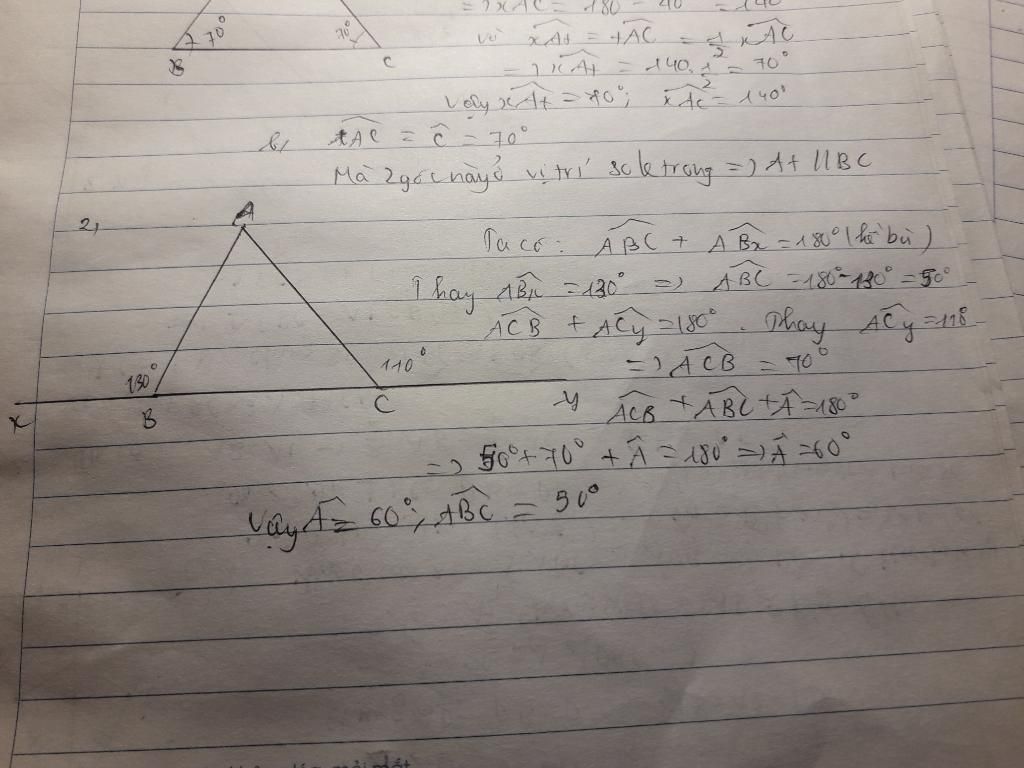 => xAC = 180 - 40 = 140
70°
70°
B
C
vì xAt = tAC = 1/2 xAC
=> xAt = 140. 1/2 = 70°
Vậy xAt = 70°; xAC = 140°
b, tAC = C = 70°
Mà 2 góc này ở vị trí so le trong => At // BC
2,
A
Ta có: ABC + ABx = 180° (kề bù)
Thay ABx = 130° => ABC = 180° - 130° = 50°
ACB + ACy = 180°. Thay ACy = 110
=> ACB = 70°
130°
110°
x
B
C
y
ACB + ABC + A = 180°
=> 50° + 70° + A = 180° => A = 60°
Vậy A = 60°; ABC = 50°